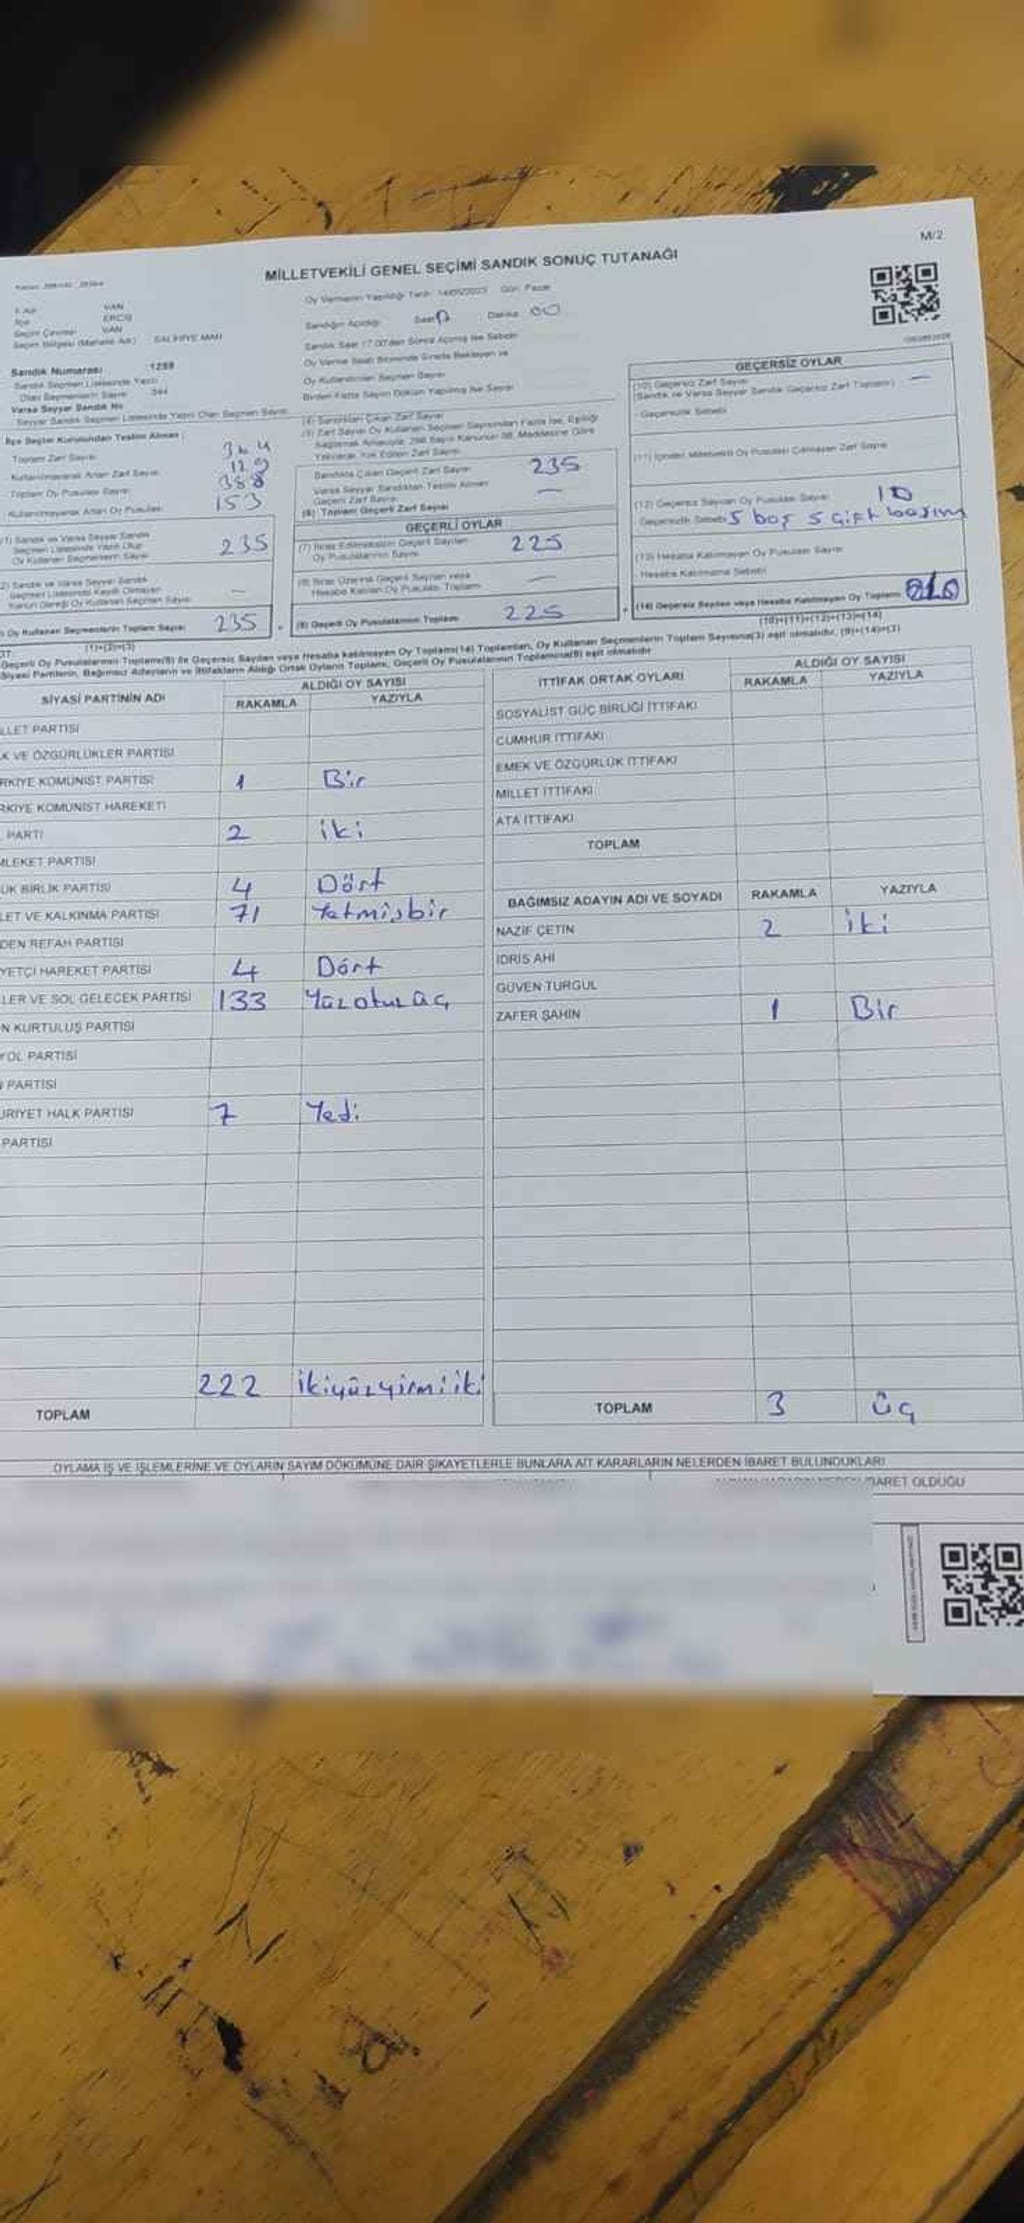 M/2
MİLLETVEKİLİ GENEL SEÇİMİ SANDIK SONUÇ TUTANAĞI
Oy Vermenin Yapıldığı Tarih: 14/05/2023 Gün: Pazar
VAN
ERCİŞ
Seçim Çevresi VAN
Seçim Bölgesi (Mahalle Adı) : SALİHİYE MAH
Sandığın Açıldığı Saat Dakika 00
Sandık Saat 17.00'den Sonra Açılmış İse Sebebi
Oy Verme Saati Bitiminde Sırada Bekleyen ve
Oy Kullandırılan Seçmen Sayısı
Birden Fazla Sayım Döküm Yapılmış İse Sayısı
Sandık Numarası 1288
Sandık Seçmen Listesinde Yazılı
Olan Seçmenlerin Sayısı 344
Varsa Seyyar Sandık No
Seyyar Sandık Seçmen Listesinde Yazılı Olan Seçmen Sayısı
İlçe Seçim Kurulundan Teslim Alınan :
Toplam Zarf Sayısı
Kullanılmayarak Artan Zarf Sayısı
Toplam Oy Pusulası Sayısı 388
Kullanılmayarak Artan Oy Pusulası 153
(1) Sandık ve Varsa Seyyar Sandık
Seçmen Listesinde Yazılı Olup
Oy Kullanan Seçmenlerin Sayısı 235
Sandık ve Varsa Seyyar Sandık
Seçmen Listesinde Kayıtlı Olmayan
Kanun Gereği Oy Kullanan Seçmen Sayısı —
Oy Kullanan Seçmenlerin Toplam Sayısı 235
(1)+(2)=(3)
(4) Sandıktan Çıkan Zarf Sayısı
(5) Zarf Sayısı Oy Kullanan Seçmen Sayısından Fazla İse, Eşitliği
Sağlamak Amacıyla, 298 Sayılı Kanunun 98. Maddesine Göre
Yakılarak Yok Edilen Zarf Sayısı
Sandıkta Çıkan Geçerli Zarf Sayısı 235
Varsa Seyyar Sandıktan Teslim Alınan
Geçerli Zarf Sayısı —
(6) Toplam Geçerli Zarf Sayısı
GEÇERLİ OYLAR
(7) İtiraz Edilmeksizin Geçerli Sayılan
Oy Pusulalarının Sayısı 225
(8) İtiraz Üzerine Geçerli Sayılan veya
Hesaba Katılan Oy Pusulası Toplamı —
(9) Geçerli Oy Pusulalarının Toplamı 225
GEÇERSİZ OYLAR
(10) Geçersiz Zarf Sayısı
(Sandık ve Varsa Seyyar Sandık Geçersiz Zarf Toplamı) —
Geçersizlik Sebebi
(11) İçinden Milletvekili Oy Pusulası Çıkmayan Zarf Sayısı
(12) Geçersiz Sayılan Oy Pusulası Sayısı 10
Geçersizlik Sebebi 5 boş 5 çift basım
(13) Hesaba Katılmayan Oy Pusulası Sayısı
Hesaba Katılmama Sebebi
(14) Geçersiz Sayılan veya Hesaba Katılmayan Oy Toplamı
(10)+(11)+(12)+(13)=(14)
Geçerli Oy Pusulalarının Toplamı(9) ile Geçersiz Sayılan veya Hesaba katılmayan Oy Toplamı(14) Toplamları, Oy Kullanan Seçmenlerin Toplam Sayısına(3) eşit olmalıdır, (9)+(14)=(3)
Siyasi Partilerin, Bağımsız Adayların ve İttifakların Aldığı Ortak Oyların Toplamı, Geçerli Oy Pusulalarının Toplamına(9) eşit olmalıdır
SİYASİ PARTİNİN ADI ALDIĞI OY SAYISI
RAKAMLA YAZIYLA
LLET PARTİSİ
K VE ÖZGÜRLÜKLER PARTİSİ
RKİYE KOMÜNİST PARTİSİ 1 Bir
RKİYE KOMÜNİST HAREKETİ
PARTİ 2 iki
MLEKET PARTİSİ
ÜK BİRLİK PARTİSİ 4 Dört
LET VE KALKINMA PARTİSİ 71 Yetmişbir
DEN REFAH PARTİSİ
YETÇİ HAREKET PARTİSİ 4 Dört
LLER VE SOL GELECEK PARTİSİ 133 Yüzotuzüç
N KURTULUŞ PARTİSİ
YOL PARTİSİ
PARTİSİ
URİYET HALK PARTİSİ 7 Yedi
PARTİSİ
TOPLAM 222 ikiyüzyirmiiki
İTTİFAK ORTAK OYLARI ALDIĞI OY SAYISI
RAKAMLA YAZIYLA
SOSYALİST GÜÇ BİRLİĞİ İTTİFAKI
CUMHUR İTTİFAKI
EMEK VE ÖZGÜRLÜK İTTİFAKI
MİLLET İTTİFAKI
ATA İTTİFAKI
TOPLAM
BAĞIMSIZ ADAYIN ADI VE SOYADI RAKAMLA YAZIYLA
NAZİF ÇETİN 2 iki
İDRİS AHİ
GÜVEN TURGUL
ZAFER ŞAHİN 1 Bir
TOPLAM 3 üç
OYLAMA İŞ VE İŞLEMLERİNE VE OYLARIN SAYIM DÖKÜMÜNE DAİR ŞİKAYETLERLE BUNLARA AİT KARARLARIN NELERDEN İBARET BULUNDUKLARI
OLDUĞU